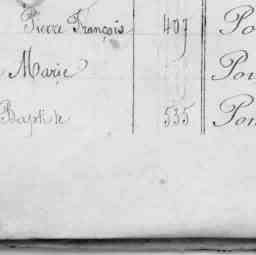 Pierre François 407 Po
Marie Pou
Baptiste 535 Pon